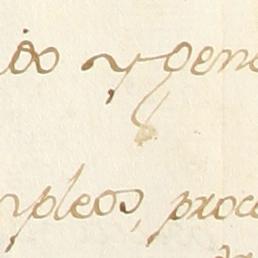 ios y gene
mpleos, proce